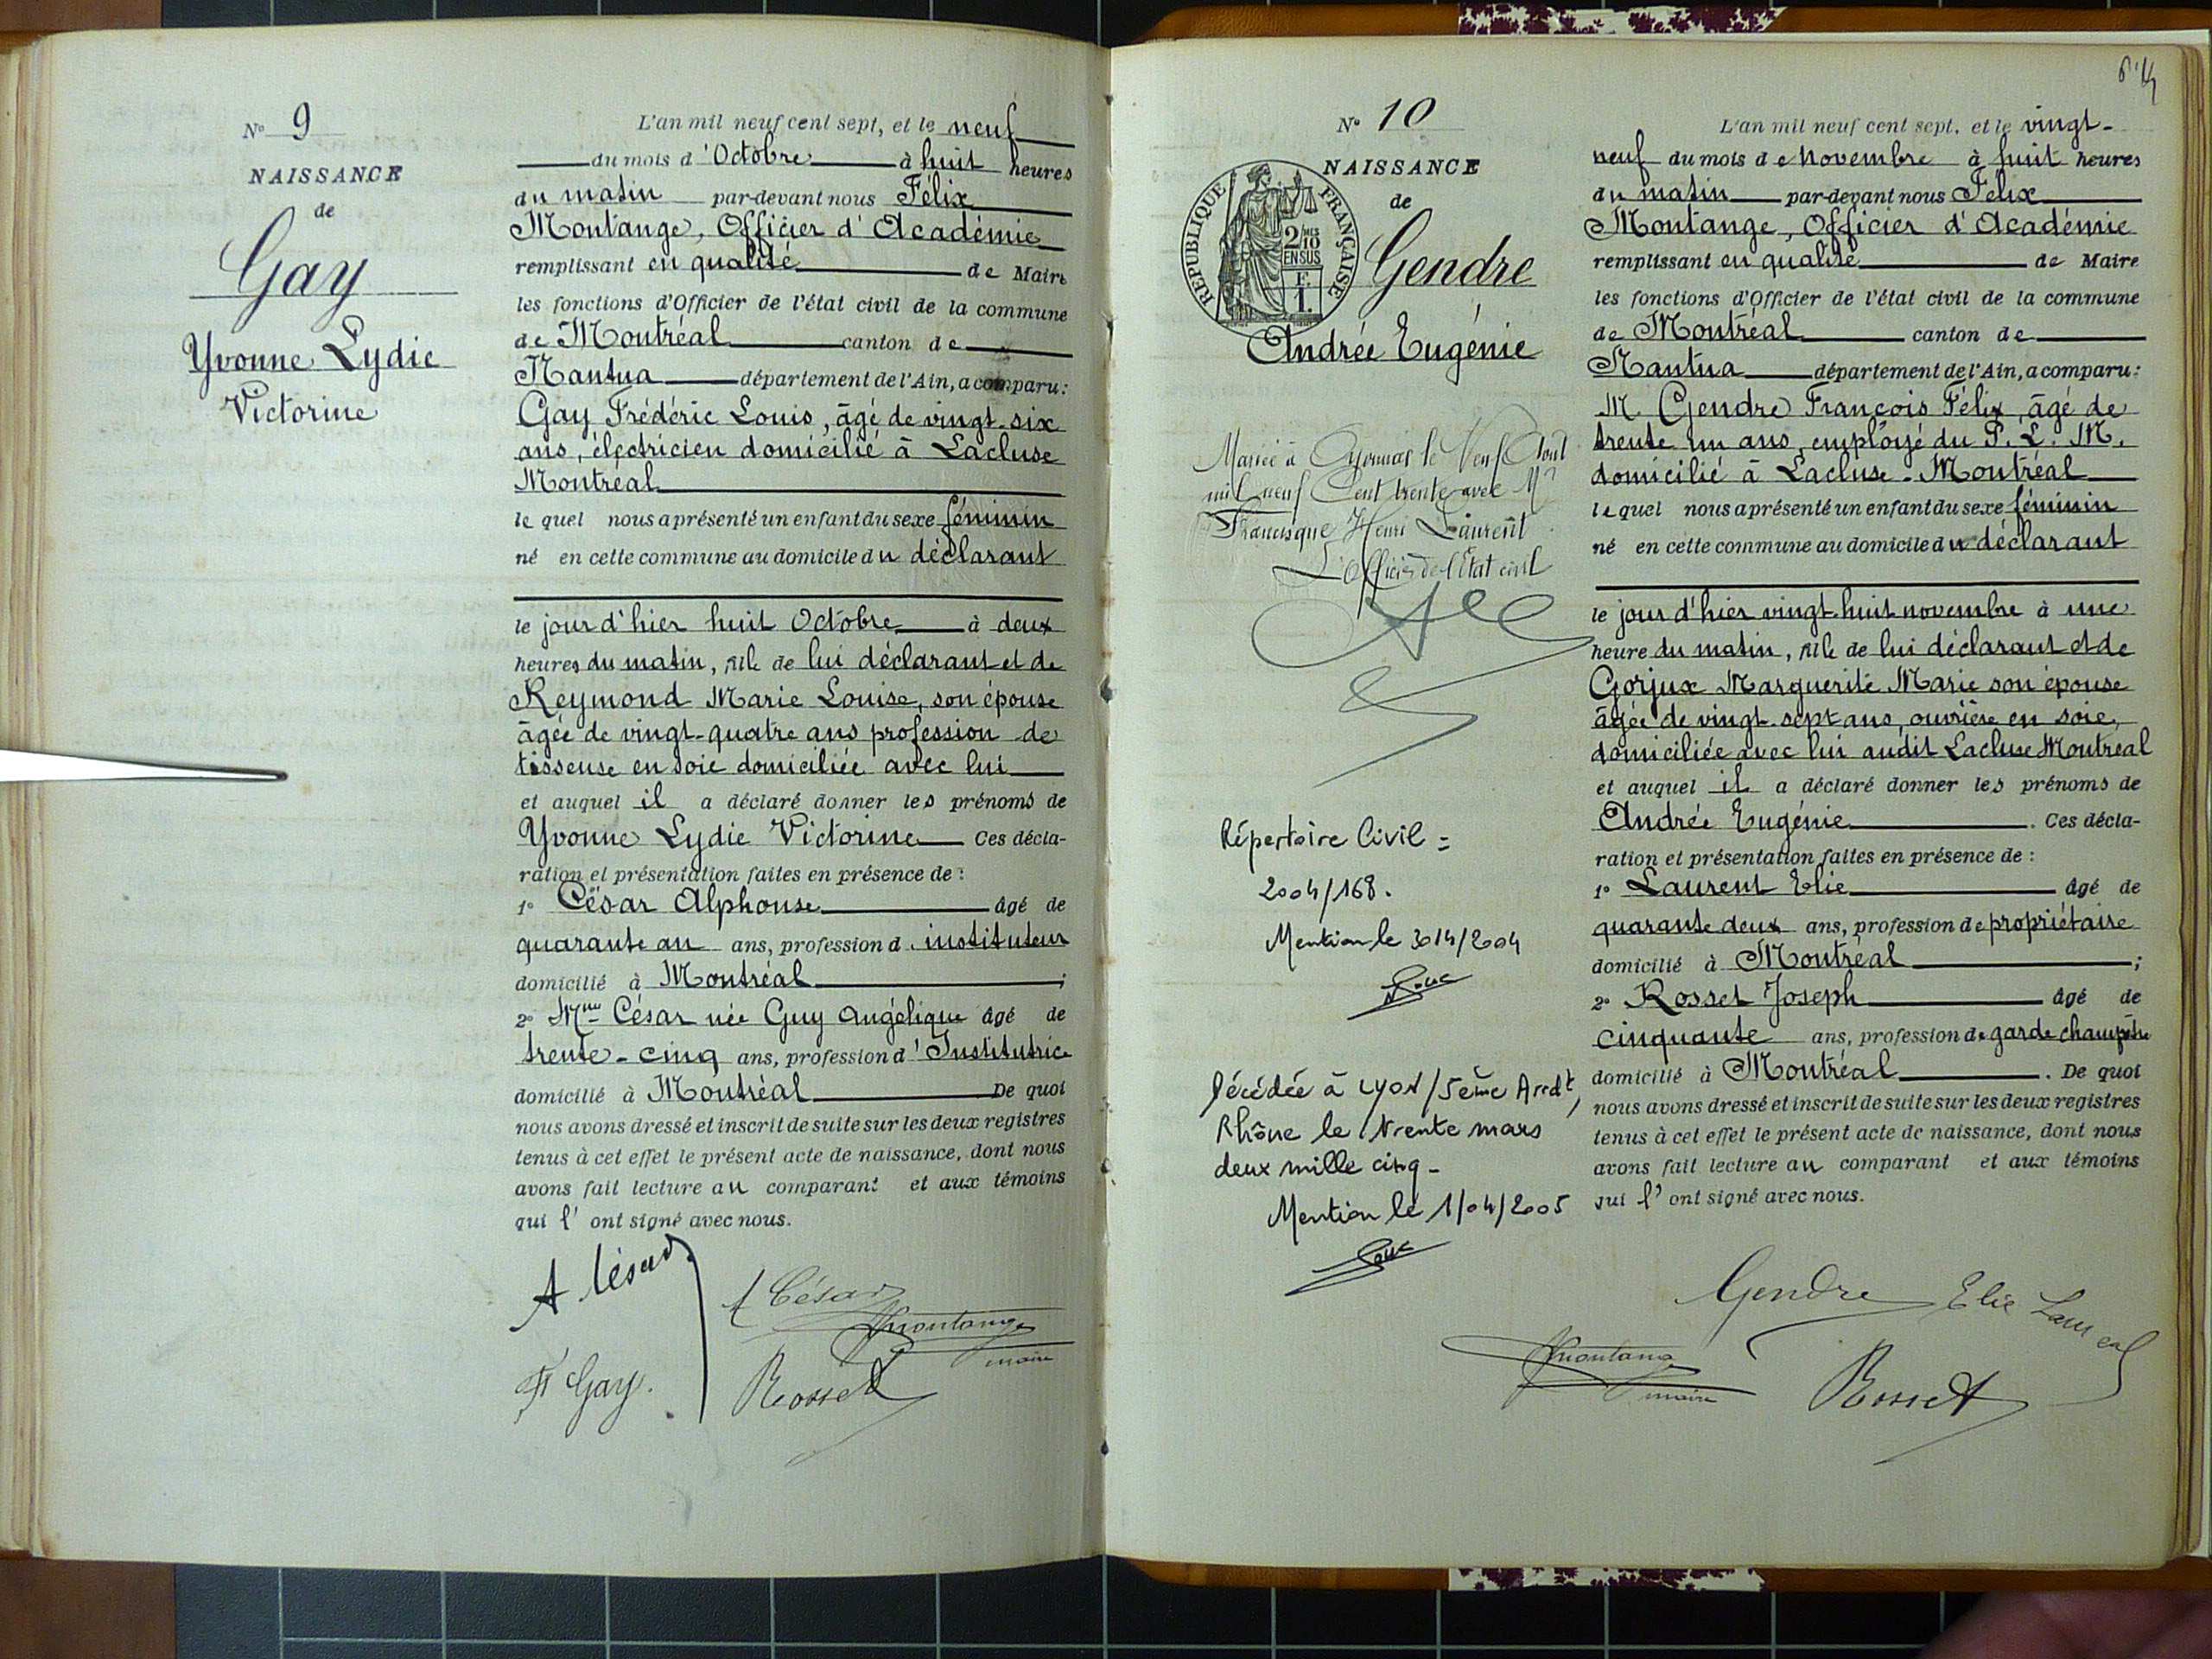 N° 9
NAISSANCE
de
Gay
Yvonne Lydie
Victorine
L'an mil neuf cent sept, et le neuf
du mois d'Octobre à huit heures
du matin par-devant nous Félix
Montange, Officier d'Académie
remplissant en qualité de Maire
les fonctions d'Officier de l'état civil de la commune
de Montréal canton de
Nantua département de l'Ain, a comparu:
Gay Frédéric Louis, âgé de vingt-six
ans, électricien domicilié à Lacluse
Montréal
lequel nous a présenté un enfant du sexe féminin
né en cette commune au domicile du déclarant
le jour d'hier huit Octobre à deux
heures du matin, fille de lui déclarant et de
Reymond Marie Louise, son épouse
âgée de vingt-quatre ans profession de
tisseuse en soie domiciliée avec lui
et auquel il a déclaré donner les prénoms de
Yvonne Lydie Victorine Ces décla-
ration et présentation faites en présence de :
1° César Alphonse âgé de
quarante un ans, profession d'instituteur
domicilié à Montréal ;
2° Mme César née Guy Angélique âgé de
trente-cinq ans, profession d'Institutrice
domicilié à Montréal De quoi
nous avons dressé et inscrit de suite sur les deux registres
tenus à cet effet le présent acte de naissance, dont nous
avons fait lecture au comparant et aux témoins
qui l'ont signé avec nous.
A César
A César
Montange
maire
F Gay.
Rosset
6
N° 10
NAISSANCE
de
REPUBLIQUE FRANÇAISE
2/10
EN SUS
F.
1.
Gendre
Andrée Eugénie
Mariée à Oyonnax le Neuf Août
mil neuf Cent trente avec Mr
Francisque Henri Laurent
L'Officier de l'Etat civil
Répertoire Civil =
2004/168.
Mention le 3014/2004
Décédée à LYON/5ème Arrdt,
Rhône le trente mars
deux mille cinq-
Mention le 1/04/2005
L'an mil neuf cent sept, et le vingt-
neuf du mois de Novembre à huit heures
du matin par-devant nous Félix
Montange, Officier d'Académie
remplissant en qualité de Maire
les fonctions d'Officier de l'état civil de la commune
de Montréal canton de
Nantua département de l'Ain, a comparu:
M. Gendre François Félix, âgé de
trente un ans, employé du P. L. M.
domicilié à Lacluse-Montréal
lequel nous a présenté un enfant du sexe féminin
né en cette commune au domicile du déclarant
le jour d'hier vingt-huit novembre à une
heure du matin, fille de lui déclarant et de
Gorjux Marguerite Marie son épouse
âgée de vingt-sept ans, ouvrière en soie,
domiciliée avec lui audit Lacluse Montréal
et auquel il a déclaré donner les prénoms de
Andrée Eugénie. Ces décla-
ration et présentation faites en présence de :
1° Laurent Elie âgé de
quarante deux ans, profession de propriétaire
domicilié à Montréal ;
2° Rosset Joseph âgé de
cinquante ans, profession de garde champêtre
domicilié à Montréal. De quoi
nous avons dressé et inscrit de suite sur les deux registres
tenus à cet effet le présent acte de naissance, dont nous
avons fait lecture au comparant et aux témoins
qui l'ont signé avec nous.
Gendre Elie Laurent
Montange
maire
Rosset